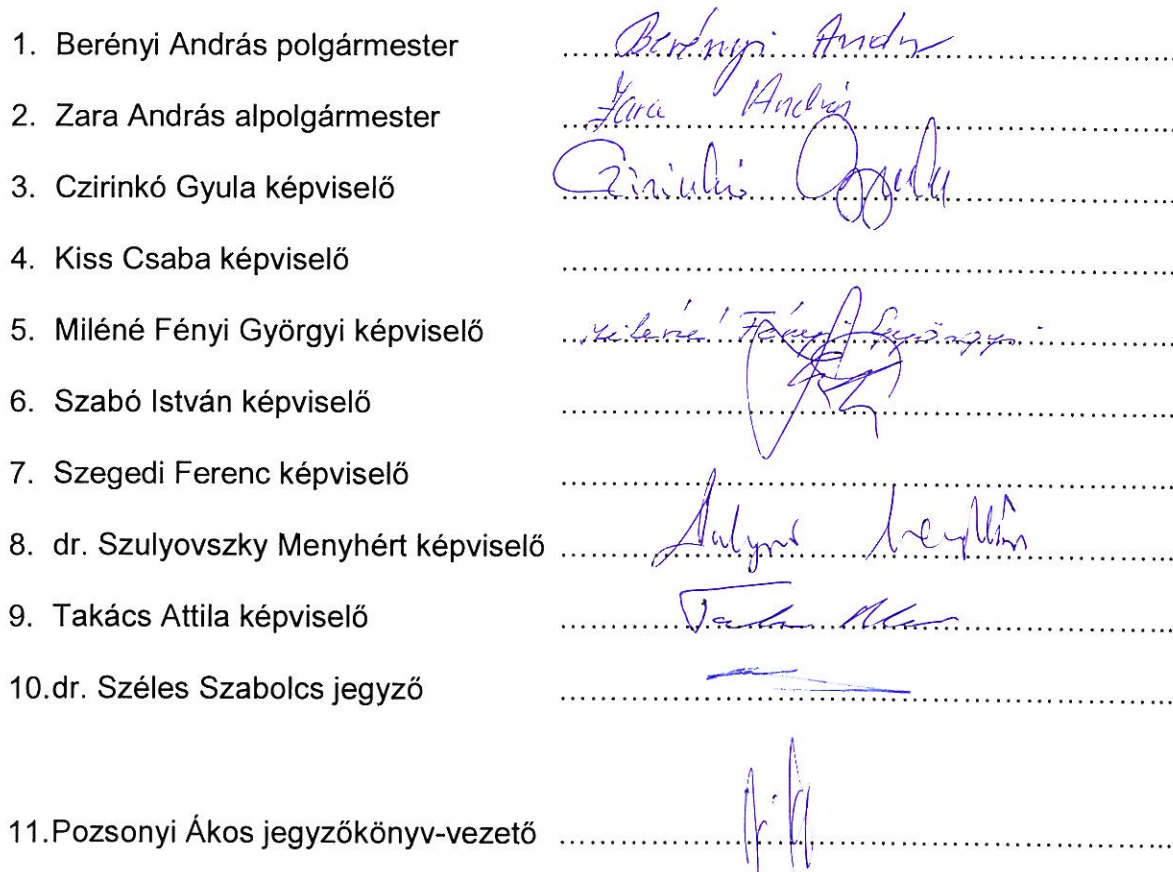 1. Berényi András polgármester .......... Berényi András
2. Zara András alpolgármester .......... Zara András
3. Czirinkó Gyula képviselő .......... Czirinkó Gyula
4. Kiss Csaba képviselő ..........
5. Miléné Fényi Györgyi képviselő .......... Miléné Fényi Györgyi
6. Szabó István képviselő ..........
7. Szegedi Ferenc képviselő ..........
8. dr. Szulyovszky Menyhért képviselő ..........
9. Takács Attila képviselő ..........
10.dr. Széles Szabolcs jegyző ..........
11.Pozsonyi Ákos jegyzőkönyv-vezető ..........